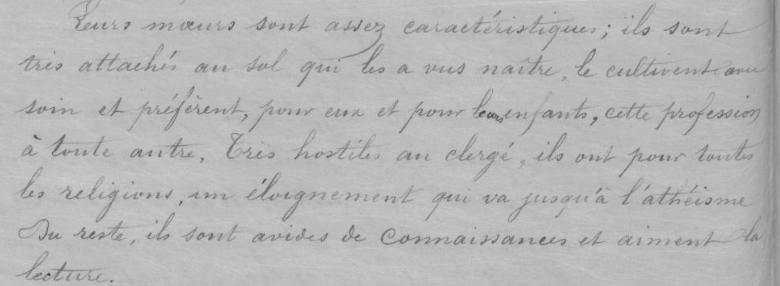 Leurs mœurs sont assez caractéristiques; ils sont
très attachés au sol qui les a vus naître, le cultivent avec
soin et préfèrent, pour eux et pour leurs enfants, cette profession
à toute autre. Très hostiles au clergé, ils ont pour toutes
les religions, un éloignement qui va jusqu'à l'athéisme
Du reste, ils sont avides de connaissances et aiment la
lecture.